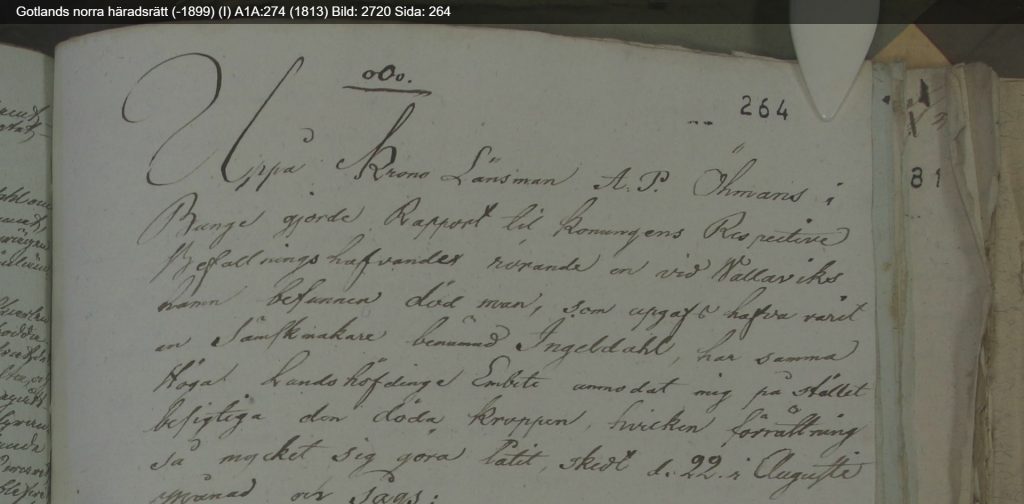 Gotlands norra häradsrätt (-1899) (I) A1A:274 (1813) Bild: 2720 Sida: 264
oOo.
264
Uppå Krono Länsman A. P. Öhmans i
81
Bunge gjorde Rapport til Konungens Respective
Befallningshafvandes rörande en vid Vallaviks
hamn befunnen död man, som upgafs hafva varit
en Sämskmakare benämnd Ingeldahl, har samma
Höga Landshöfdinge Embete anmodat mig på stället
besigtiga den döda kroppen, hvilken förrättning
så mycket sig göra låtit, skedt d. 22 i Augusti
Månad och Sågs: